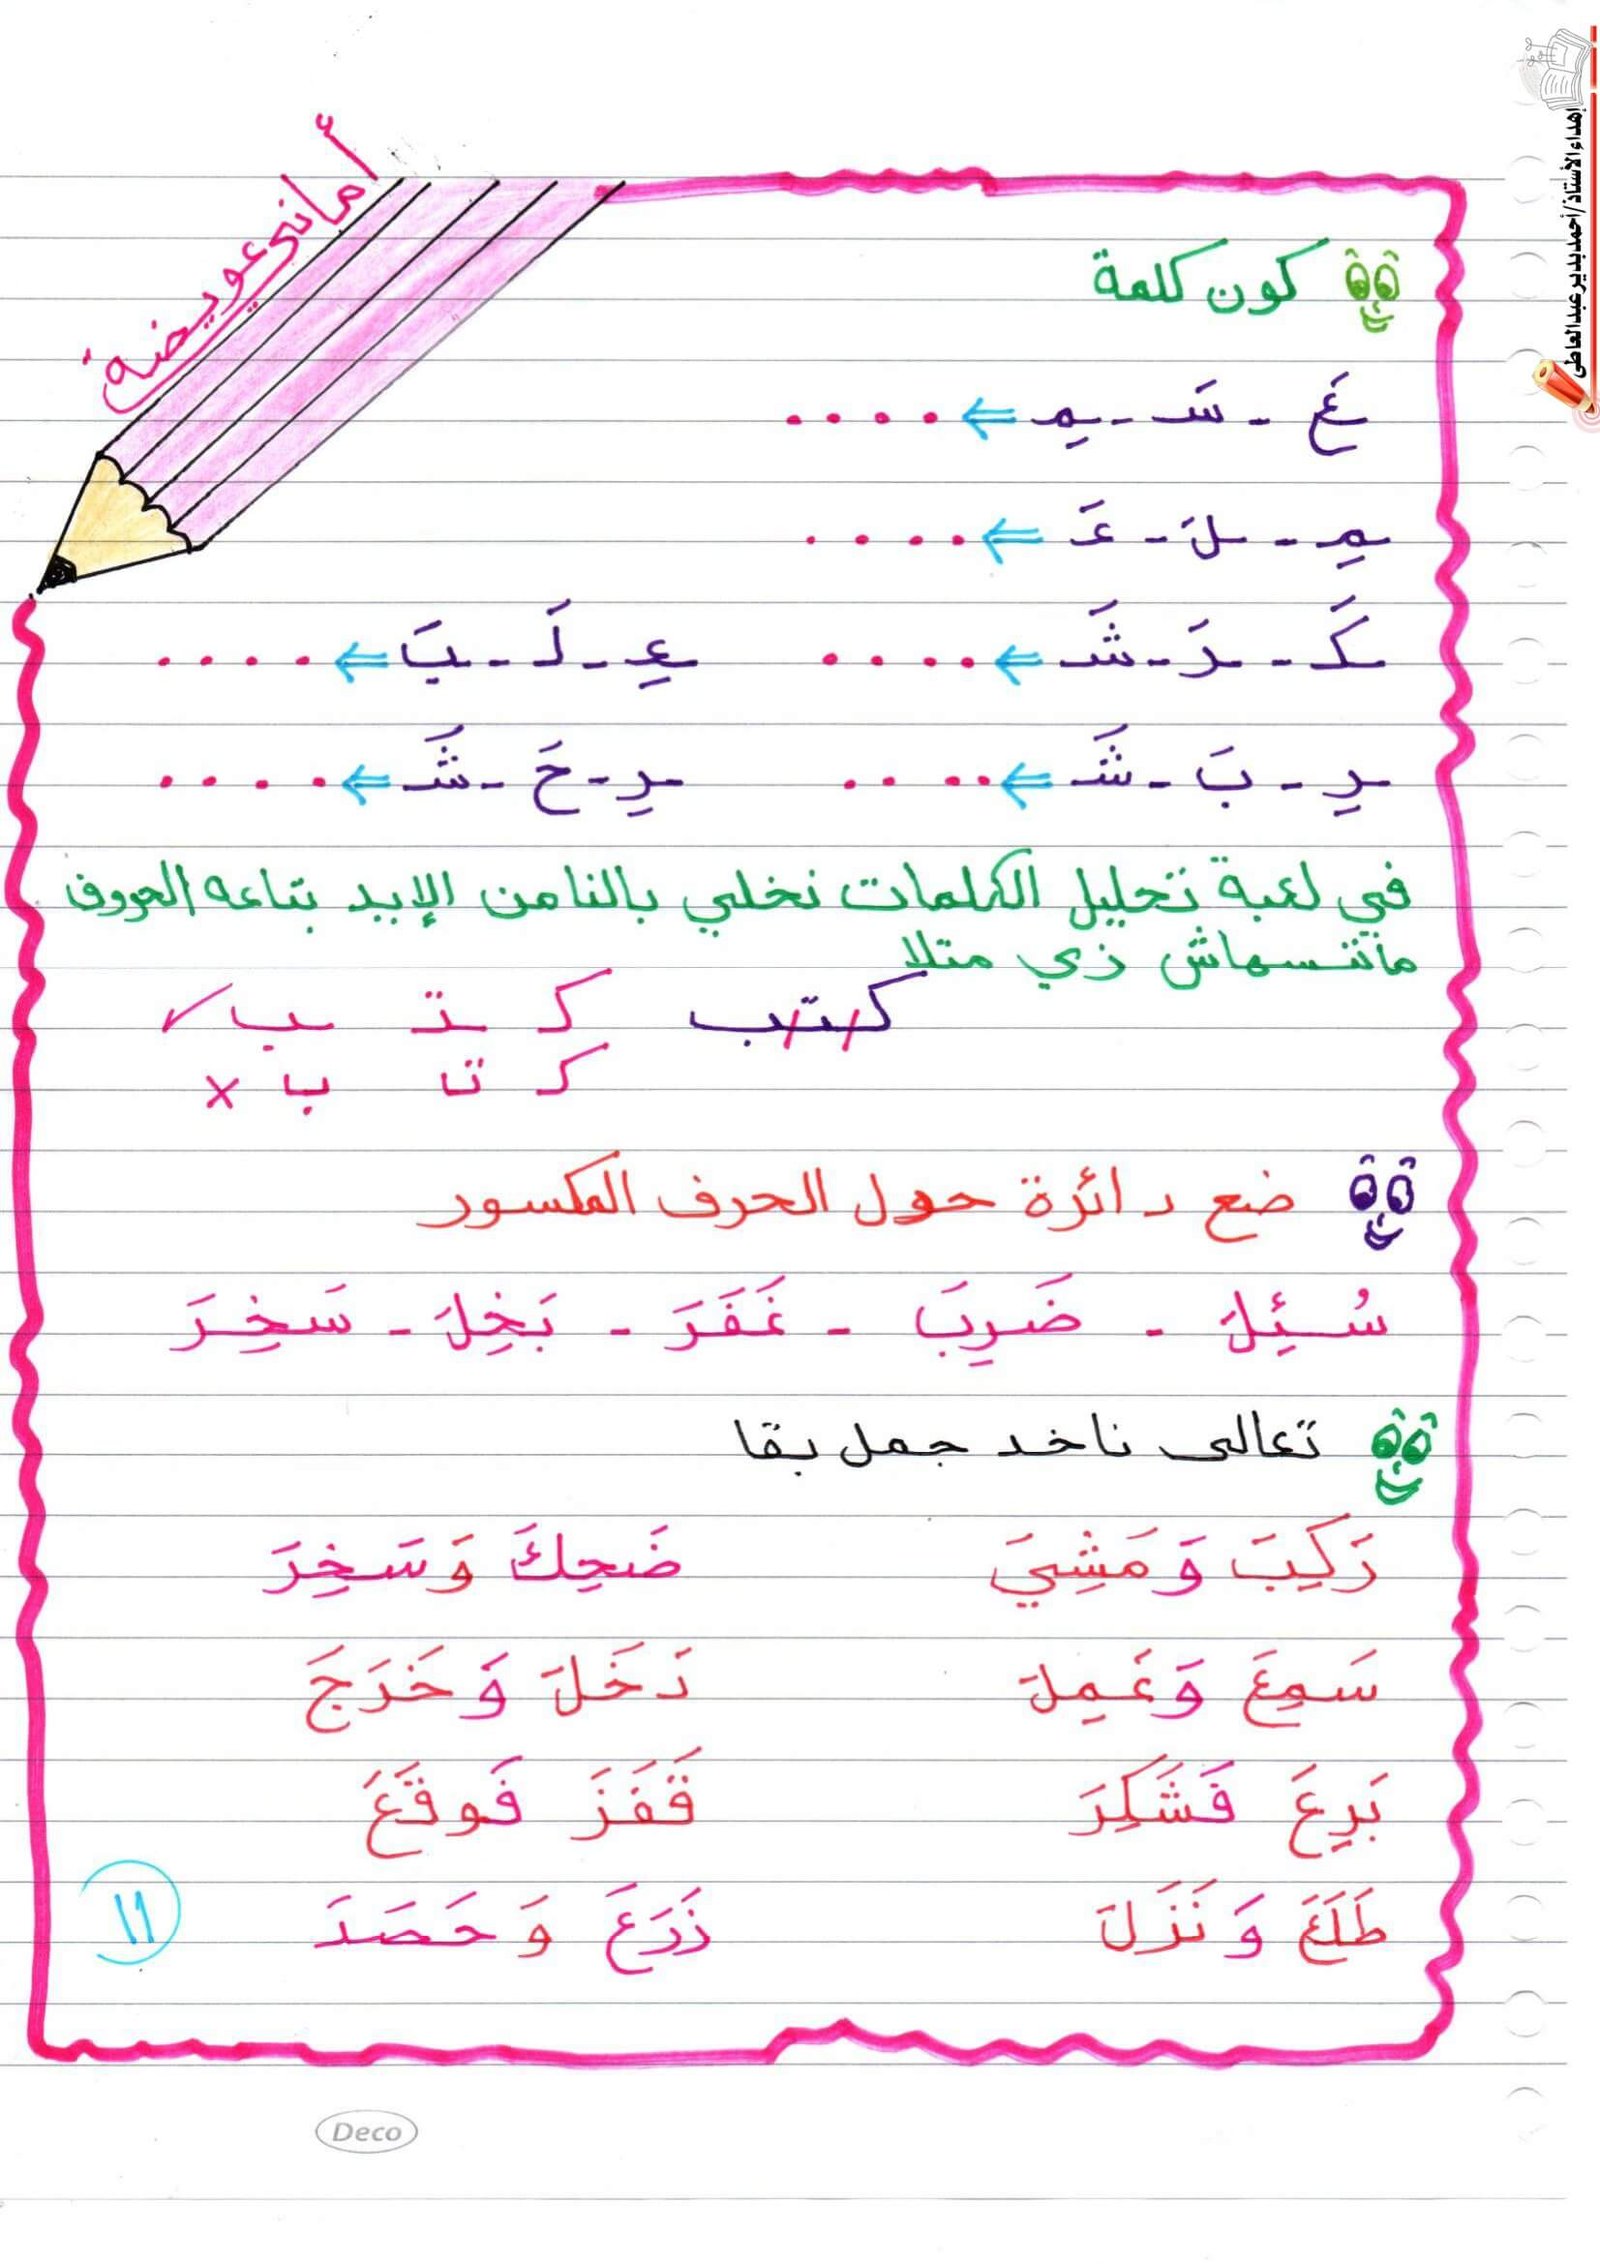 إهداء الأستاذ/أحمد بدير عبدالعاطى
أمانى عويضة
كون كلمة
عَ - سَـ - ـمِـ ⇐ ....
ـمِـ - ـلَ - عَـ ⇐ ....
كَـ - ـرَ - شَـ ⇐ .... ـعِـ - لَـ - ـبَ ⇐ ....
ـرِ - ـبَ - شَـ ⇐ .... ـرِ - حَ - شَـ ⇐ ....
في لعبة تحليل الكلمات نخلي بالنا من الإيد بتاعه الحروف
ماتنسهاش زي متلا
كتب كـ ـتـ ـب ✓
كـ تـ ب ×
ضع دائرة حول الحرف المكسور
سُئِلَ - ضَرِبَ - غَفَرَ - بَخِلَ - سَخِرَ
تعالى ناخد جمل بقا
رَكِبَ وَمَشِيَ ضَحِكَ وَسَخِرَ
سَمِعَ وَعَمِلَ دَخَلَ وَخَرَجَ
بَرِعَ فَشَكِرَ قَفَزَ فَوقَعَ
طَلَعَ وَنَزَلَ زَرَعَ وَحَصَدَ
١١
Deco